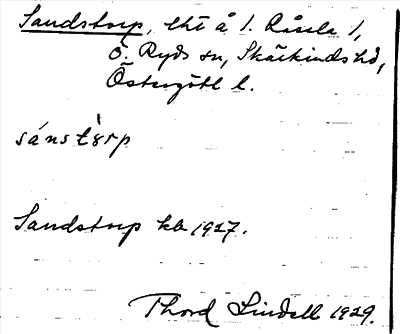 Sandstorp, lht å 1. Råsela 1,
Ö. Ryds sn, Skärkinds hd,
Östergötl l.
sánstòrp
Sandstorp kb 1927.
Thord Lindell 1929.